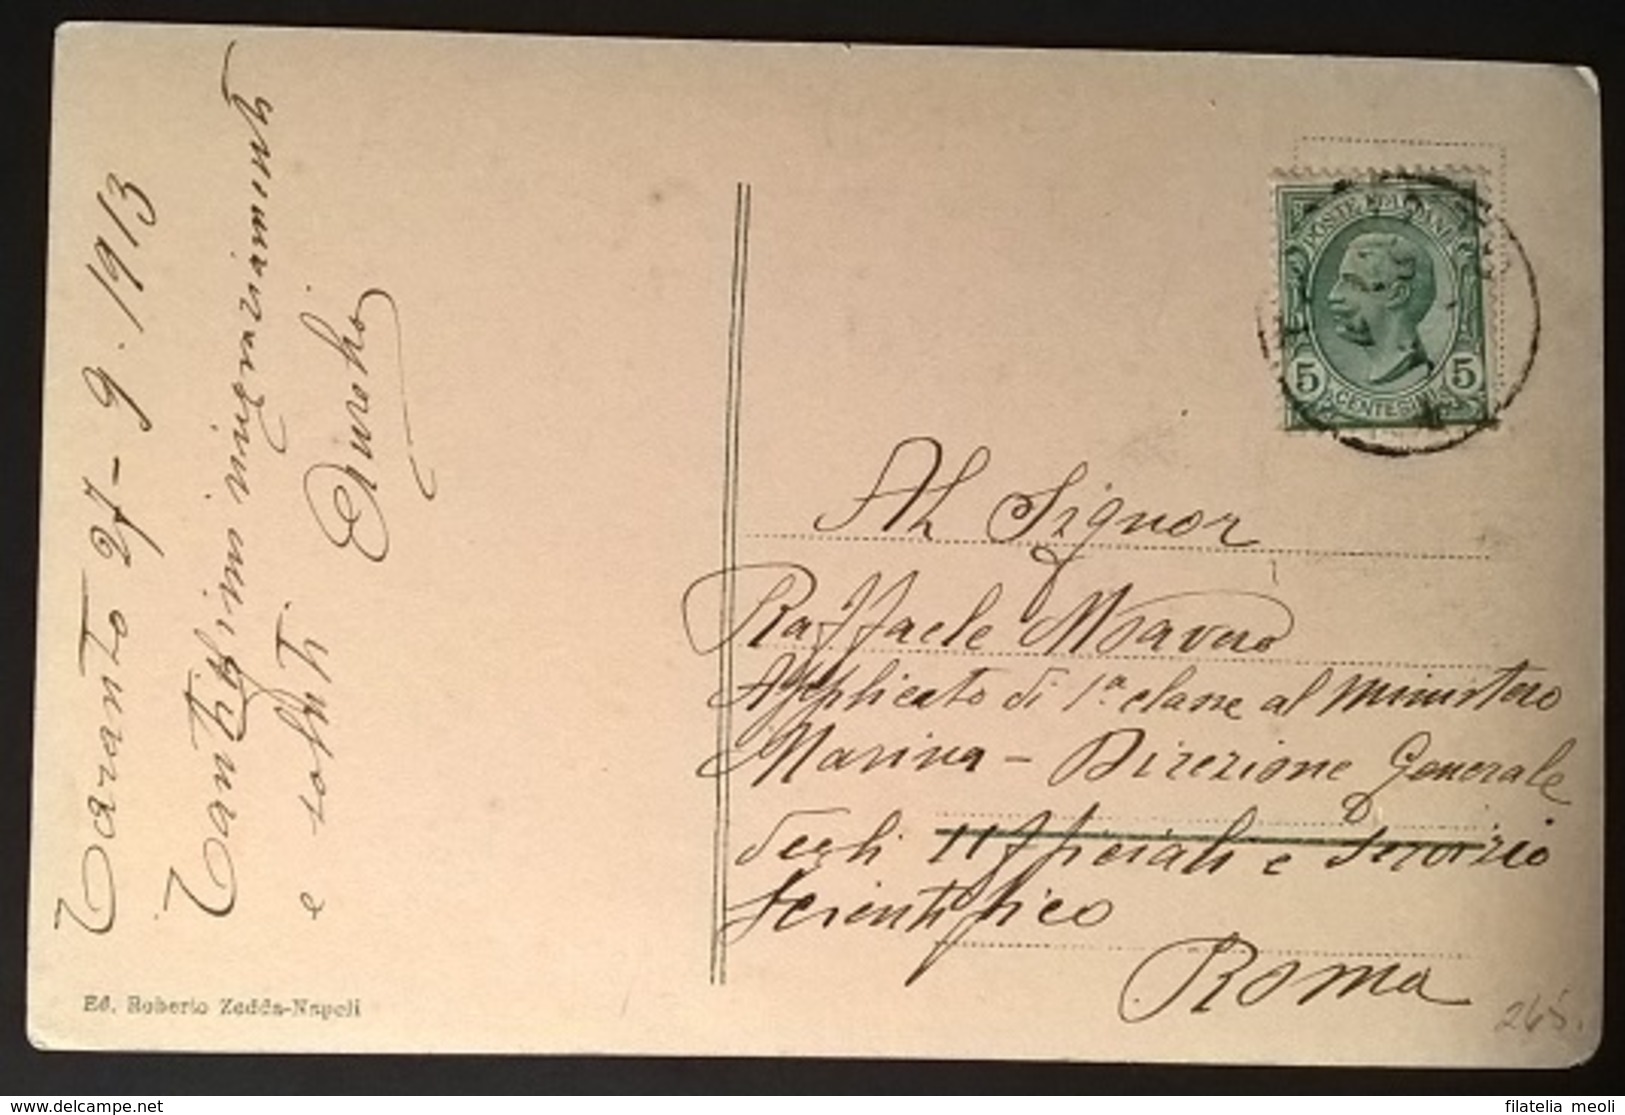 Taranto 27-9.1913
Tantissimi ringraziamenti
e saluti
Al Signor
Raffaele Mavaro
Applicato di 1ª classe al Ministero
Marina - Direzione Generale
degli Ufficiali e Servizio
Scientifico
Roma
POSTE ITALIANE
5 5
CENTESIMI
Ed. Roberto Zedda-Napoli
265.
delcampe.net
filatelia meoli